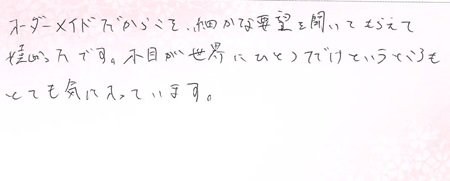 オーダーメイドだからこそ、細かな要望を聞いてもらえて
嬉しかったです。木目が世界にひとつだけというところも
とても気に入っています。